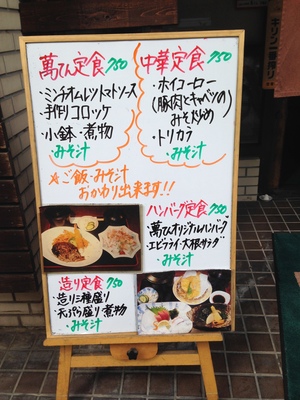 萬ひん定食 750
・ミンチオムレツトマトソース
・手作りコロッケ
・小鉢・煮物
・みそ汁
中華定食 750
・ホイコーロー
(豚肉とキャベツの
みそ炒め
・トリカラ
・みそ汁
※ご飯・みそ汁
おかわり出来ます!!
ハンバーグ定食 750
・萬ひオリジナルハンバーグ
・エビフライ・大根サラダ
・みそ汁
造り定食 750
・造り三種盛り
・天ぷら盛り・煮物
・みそ汁
キリン一番搾り